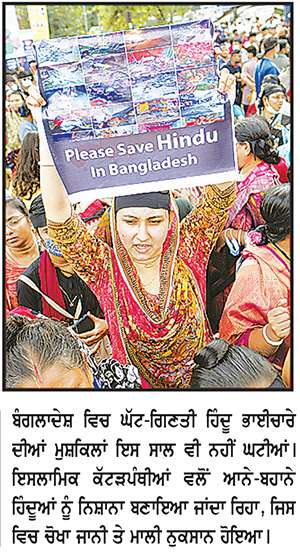 Please Save Hindu
In Bangladesh
ਬੰਗਲਾਦੇਸ਼ ਵਿਚ ਘੱਟ-ਗਿਣਤੀ ਹਿੰਦੂ ਭਾਈਚਾਰੇ
ਦੀਆਂ ਮੁਸ਼ਕਿਲਾਂ ਇਸ ਸਾਲ ਵੀ ਨਹੀਂ ਘਟੀਆਂ।
ਇਸਲਾਮਿਕ ਕੱਟੜਪੰਥੀਆਂ ਵਲੋਂ ਆਨੇ-ਬਹਾਨੇ
ਹਿੰਦੂਆਂ ਨੂੰ ਨਿਸ਼ਾਨਾ ਬਣਾਇਆ ਜਾਂਦਾ ਰਿਹਾ, ਜਿਸ
ਵਿਚ ਚੋਖਾ ਜਾਨੀ ਤੇ ਮਾਲੀ ਨੁਕਸਾਨ ਹੋਇਆ।